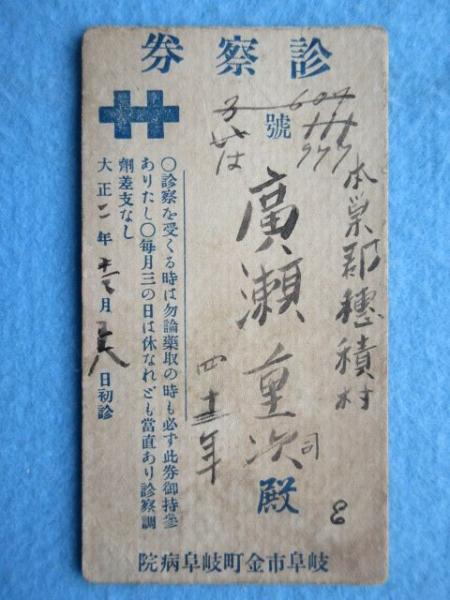 診察券
號
本巣郡穗積村
廣瀬重次殿
司
四十二年
〇診察を受くる時は勿論藥取の時も必ず此券御持參
ありたし〇每月三の日は休なれども當直あり診察調
劑差支なし
大正二年十二月 日初診
岐阜市金町岐阜病院